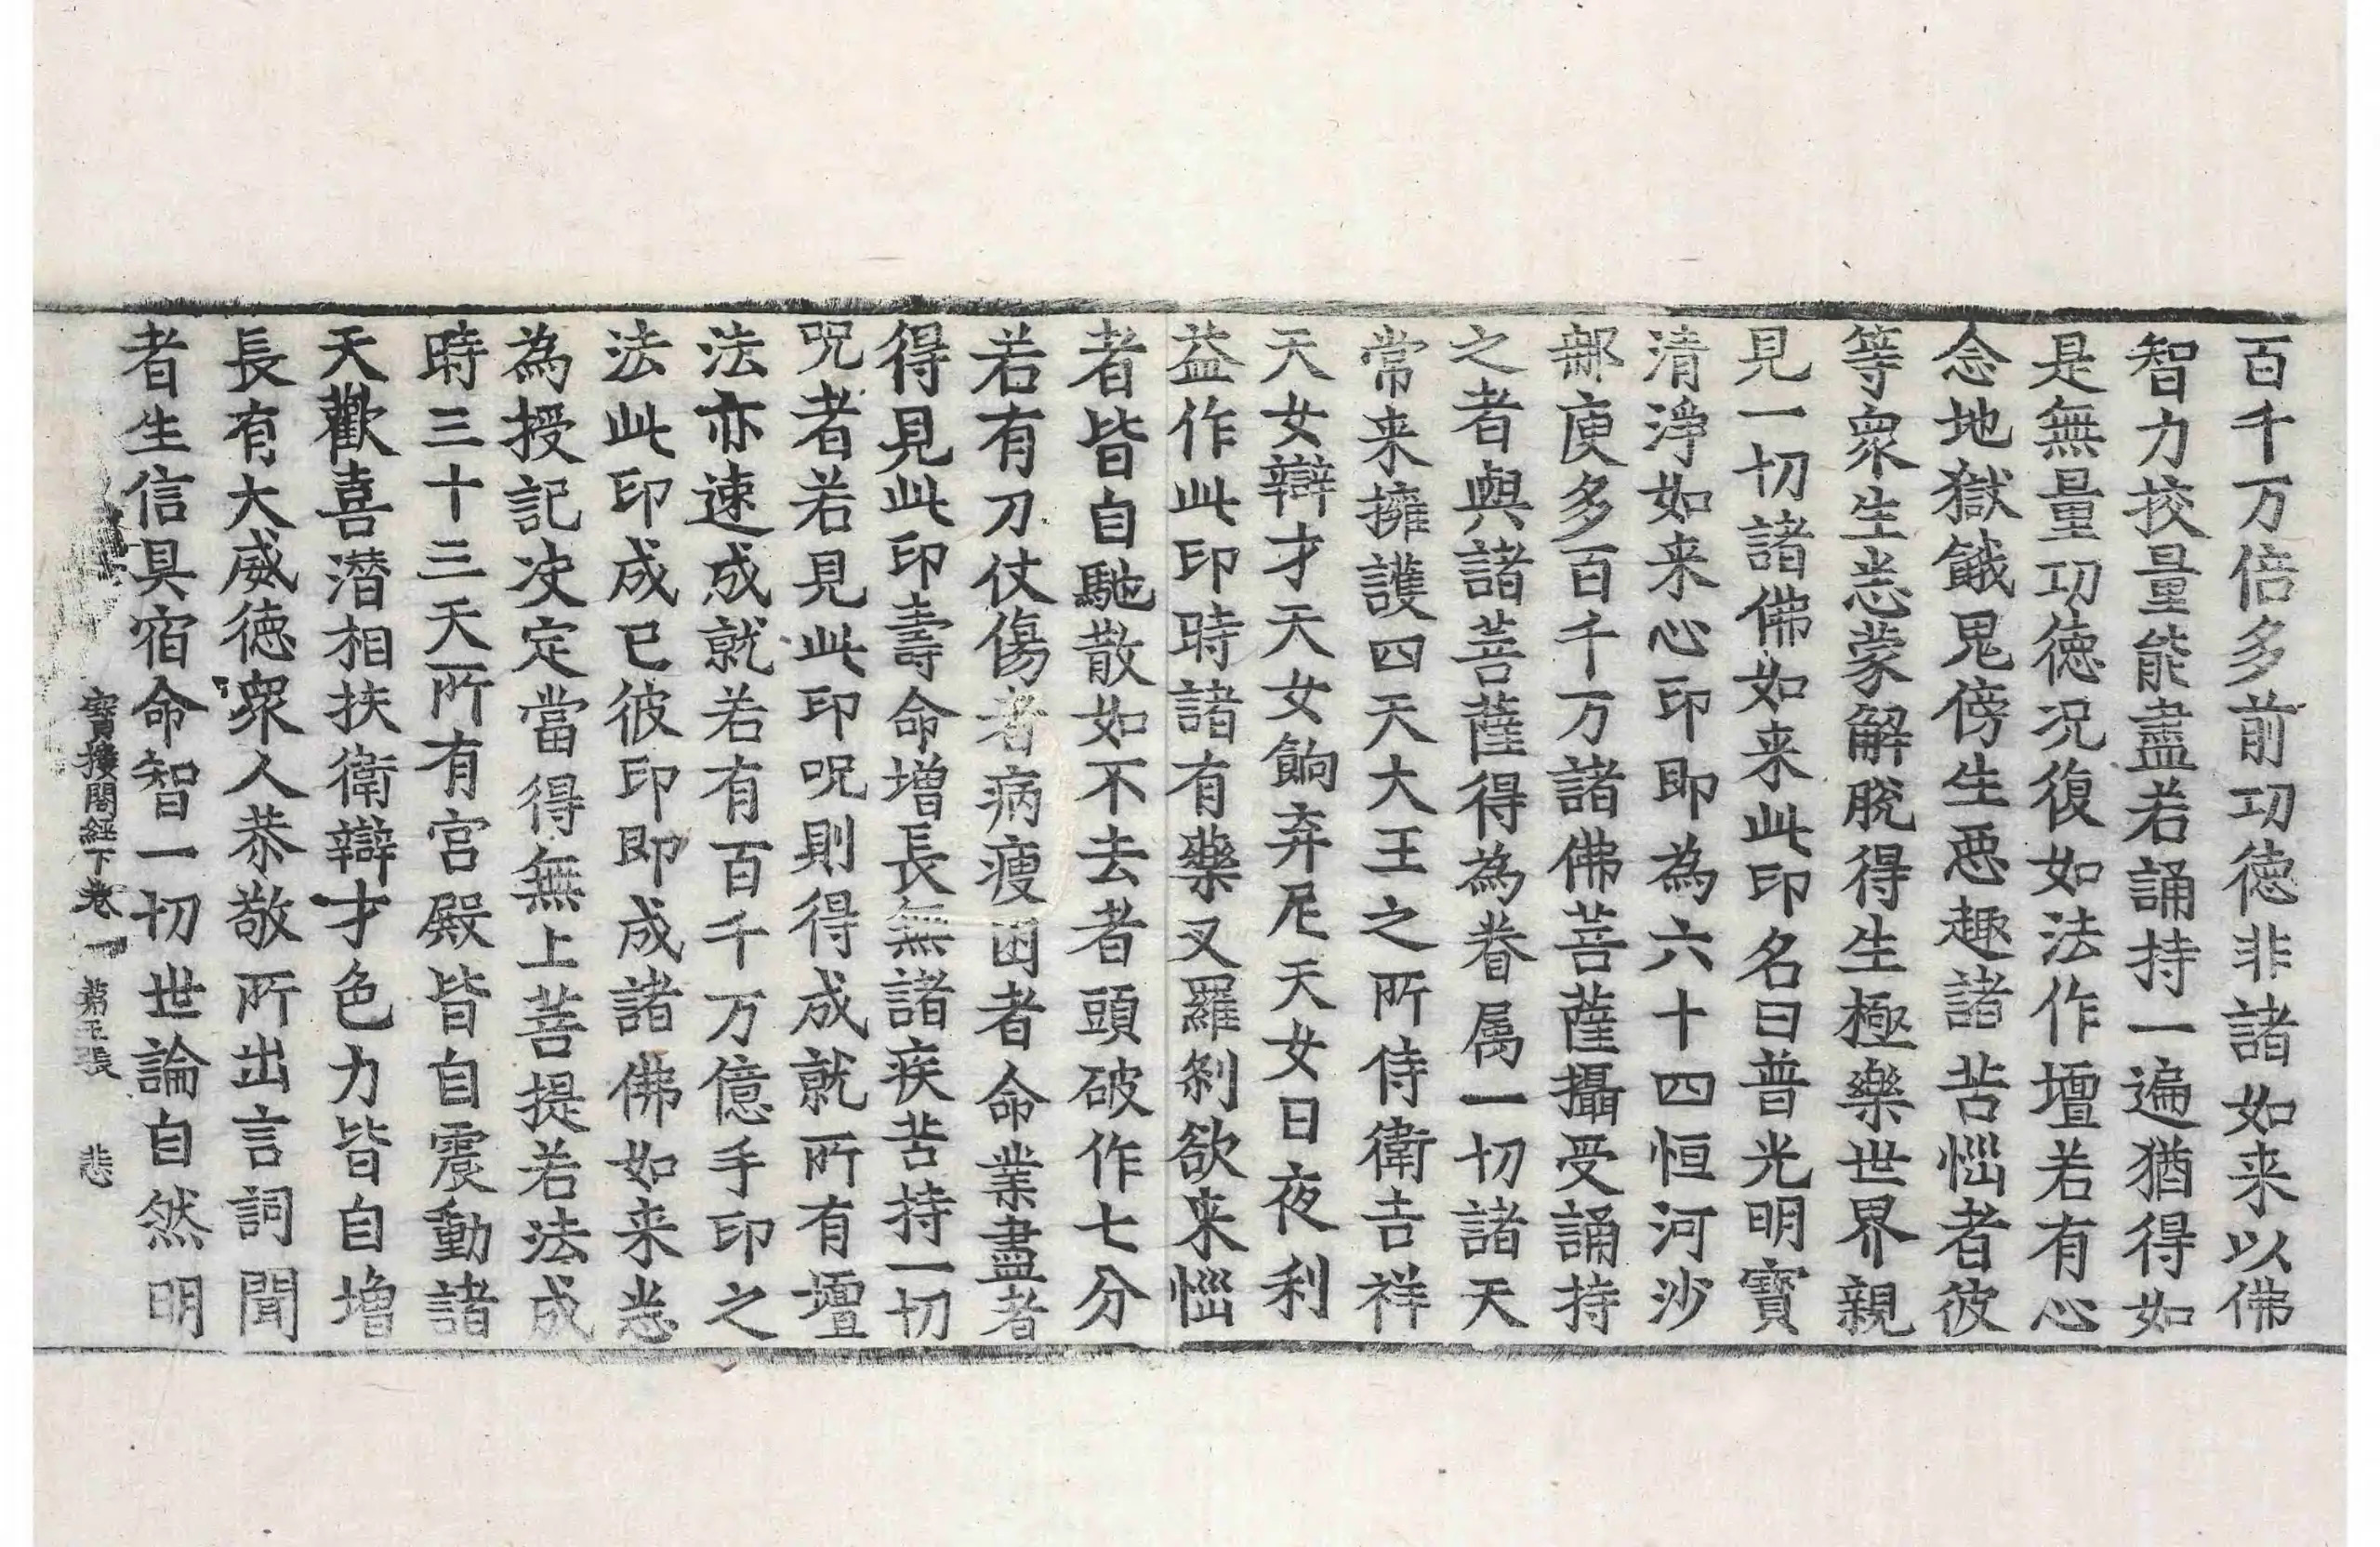 百千万倍多前功徳非諸如来以佛
智力挍量能盡若誦持一遍猶得如
是無量功徳况復如法作壇若有心
念地獄餓鬼傍生惡趣諸苦惱者彼
等衆生悉蒙解脫得生極樂世界親
見一切諸佛如来此印名曰普光明寶
清淨如来心印即為六十四恒河沙
那庾多百千万諸佛菩薩攝受誦持
之者與諸菩薩得為眷属一切諸天
常来擁護四天大王之所侍衛吉祥
天女辯才天女餉弃尼天女日夜利
益作此印時諸有藥叉羅刹欲来惱
者皆自馳散如不去者頭破作七分
若有刀仗傷者病瘦困者命業盡者
得見此印壽命增長無諸疾苦持一切
呪者若見此印呪則得成就所有壇
法亦速成就若有百千万億手印之
法此印成已彼印即成諸佛如来悉
為授記决定當得無上菩提若法成
時三十三天所有宫殿皆自震動諸
天歡喜潜相扶衛辯才色力皆自增
長有大威徳衆人恭敬所出言詞聞
者生信具宿命智一切世論自然明
寶樓閣經下卷 第五張 悲